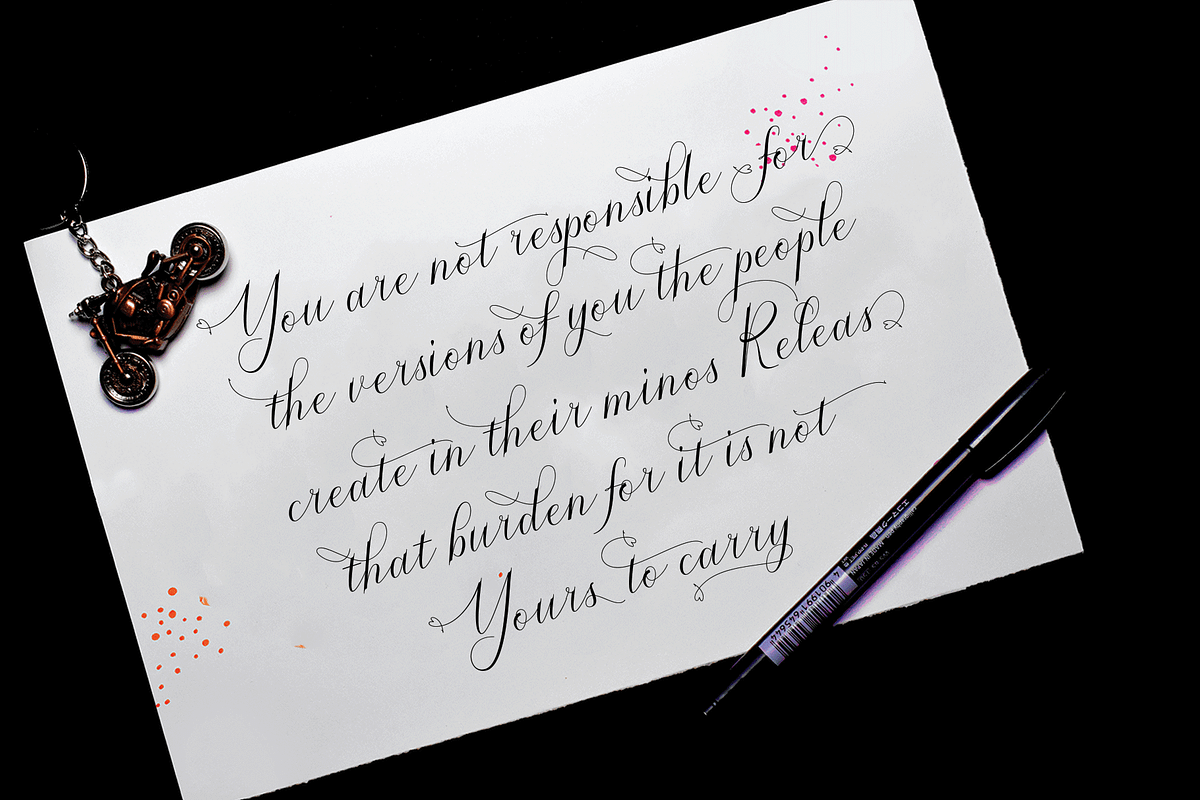 You are not responsible for
the versions of you the people
create in their minos Releas
that burden for it is not
Yours to carry
エコマーク商品
4 901991 645644